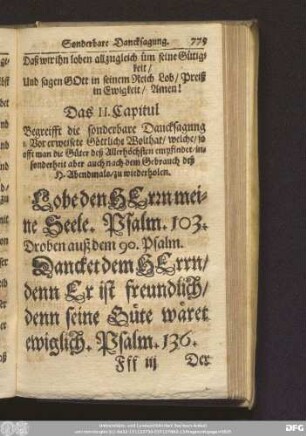 Sonderbare Dancksagung. 779
Daß wir ihn loben allzugleich üm seine Gütig-
keit/
Und sagen GOtt in seinem Reich Lob/ Preiß
in Ewigkeit/ Amen!
Das II. Capitul
Begreifft die sonderbare Dancksagung
Vor erweisete Göttliche Wolthat/ welche/ so
offt man die Güter deß Allerhöchsten empfindet/ in-
sonderheit aber auch nach dem Gebrauch deß
H. Abendmals/ zu wiederholen.
Lobe den HErrn mei-
ne Seele. Psalm. 103.
Droben auß dem 90. Psalm.
Dancket dem HErrn/
denn Er ist freundlich/
denn seine Güte wäret
ewiglich. Psalm. 136.
Fff iij Der